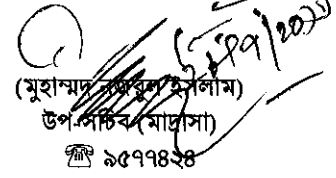 (মুহাম্মদ নজরুল ইসলাম)
উপ-সচিব (মাদ্রাসা)
☎ ৯৫৭৭৪২৪